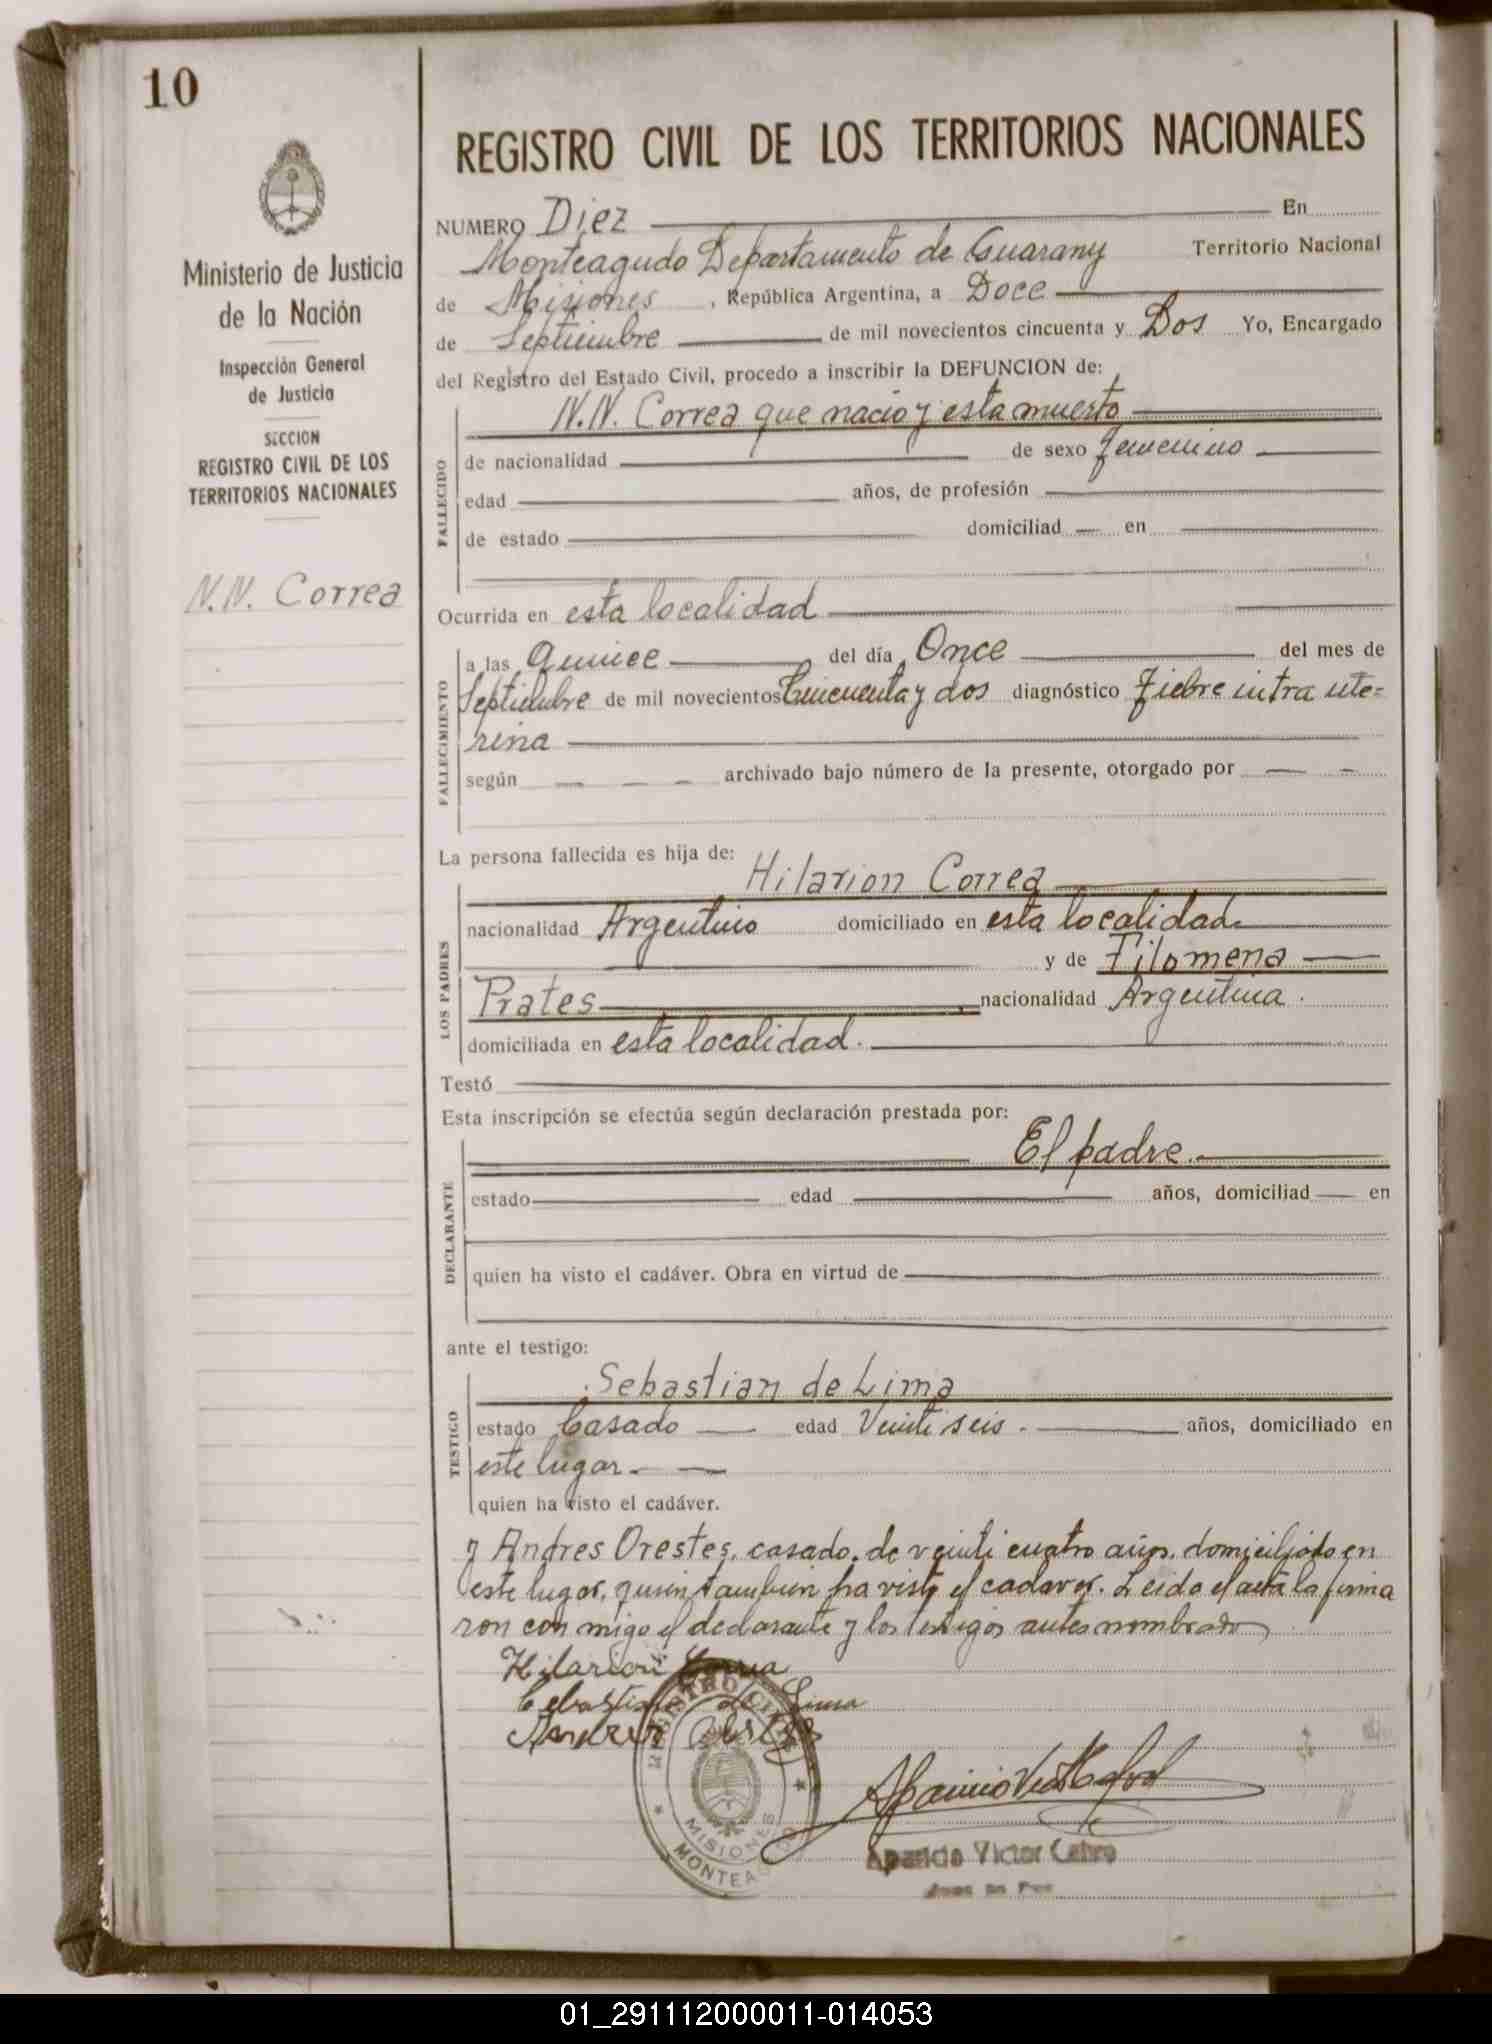 10
Ministerio de Justicia
de la Nación
Inspección General
de Justicia
SECCION
REGISTRO CIVIL DE LOS
TERRITORIOS NACIONALES
N.N. Correa
REGISTRO CIVIL DE LOS TERRITORIOS NACIONALES
NUMERO Diez En
Monteagudo Departamento de Guarany Territorio Nacional
de Misiones, República Argentina, a Doce
de Septiembre de mil novecientos cincuenta y Dos Yo, Encargado
del Registro del Estado Civil, procedo a inscribir la DEFUNCION de:
N.N. Correa que nacio y esta muerto
FALLECIDO
de nacionalidad de sexo femenino
edad años, de profesión
de estado domiciliad en
Ocurrida en esta localidad
FALLECIMIENTO
a las Quince del día Once del mes de
Septiembre de mil novecientos Cincuenta y dos diagnóstico Fiebre intra ute=
rina
según archivado bajo número de la presente, otorgado por
La persona fallecida es hija de:
Hilarion Correa
LOS PADRES
nacionalidad Argentino domiciliado en esta localidad
y de Filomena
Prates, nacionalidad Argentina.
domiciliada en esta localidad.
Testó
Esta inscripción se efectúa según declaración prestada por:
El padre.
DECLARANTE
estado edad años, domiciliad en
quien ha visto el cadáver. Obra en virtud de
ante el testigo:
Sebastian de Lima
TESTIGO
estado Casado edad Veinti seis. años, domiciliado en
este lugar.
quien ha visto el cadáver.
y Andres Orestes, casado, de veinti cuatro años, domiciliado en
este lugar, quien tambien ha visto el cadaver. Leida el acta la firma
ron con migo el declarante y los testigos antes nombrado
Hilarion Correa
de Lima
REGISTRO CIVIL
MISIONES
MONTEAGUDO
Aparicio Victor Cabro
Juez de Paz
01_291112000011-014053